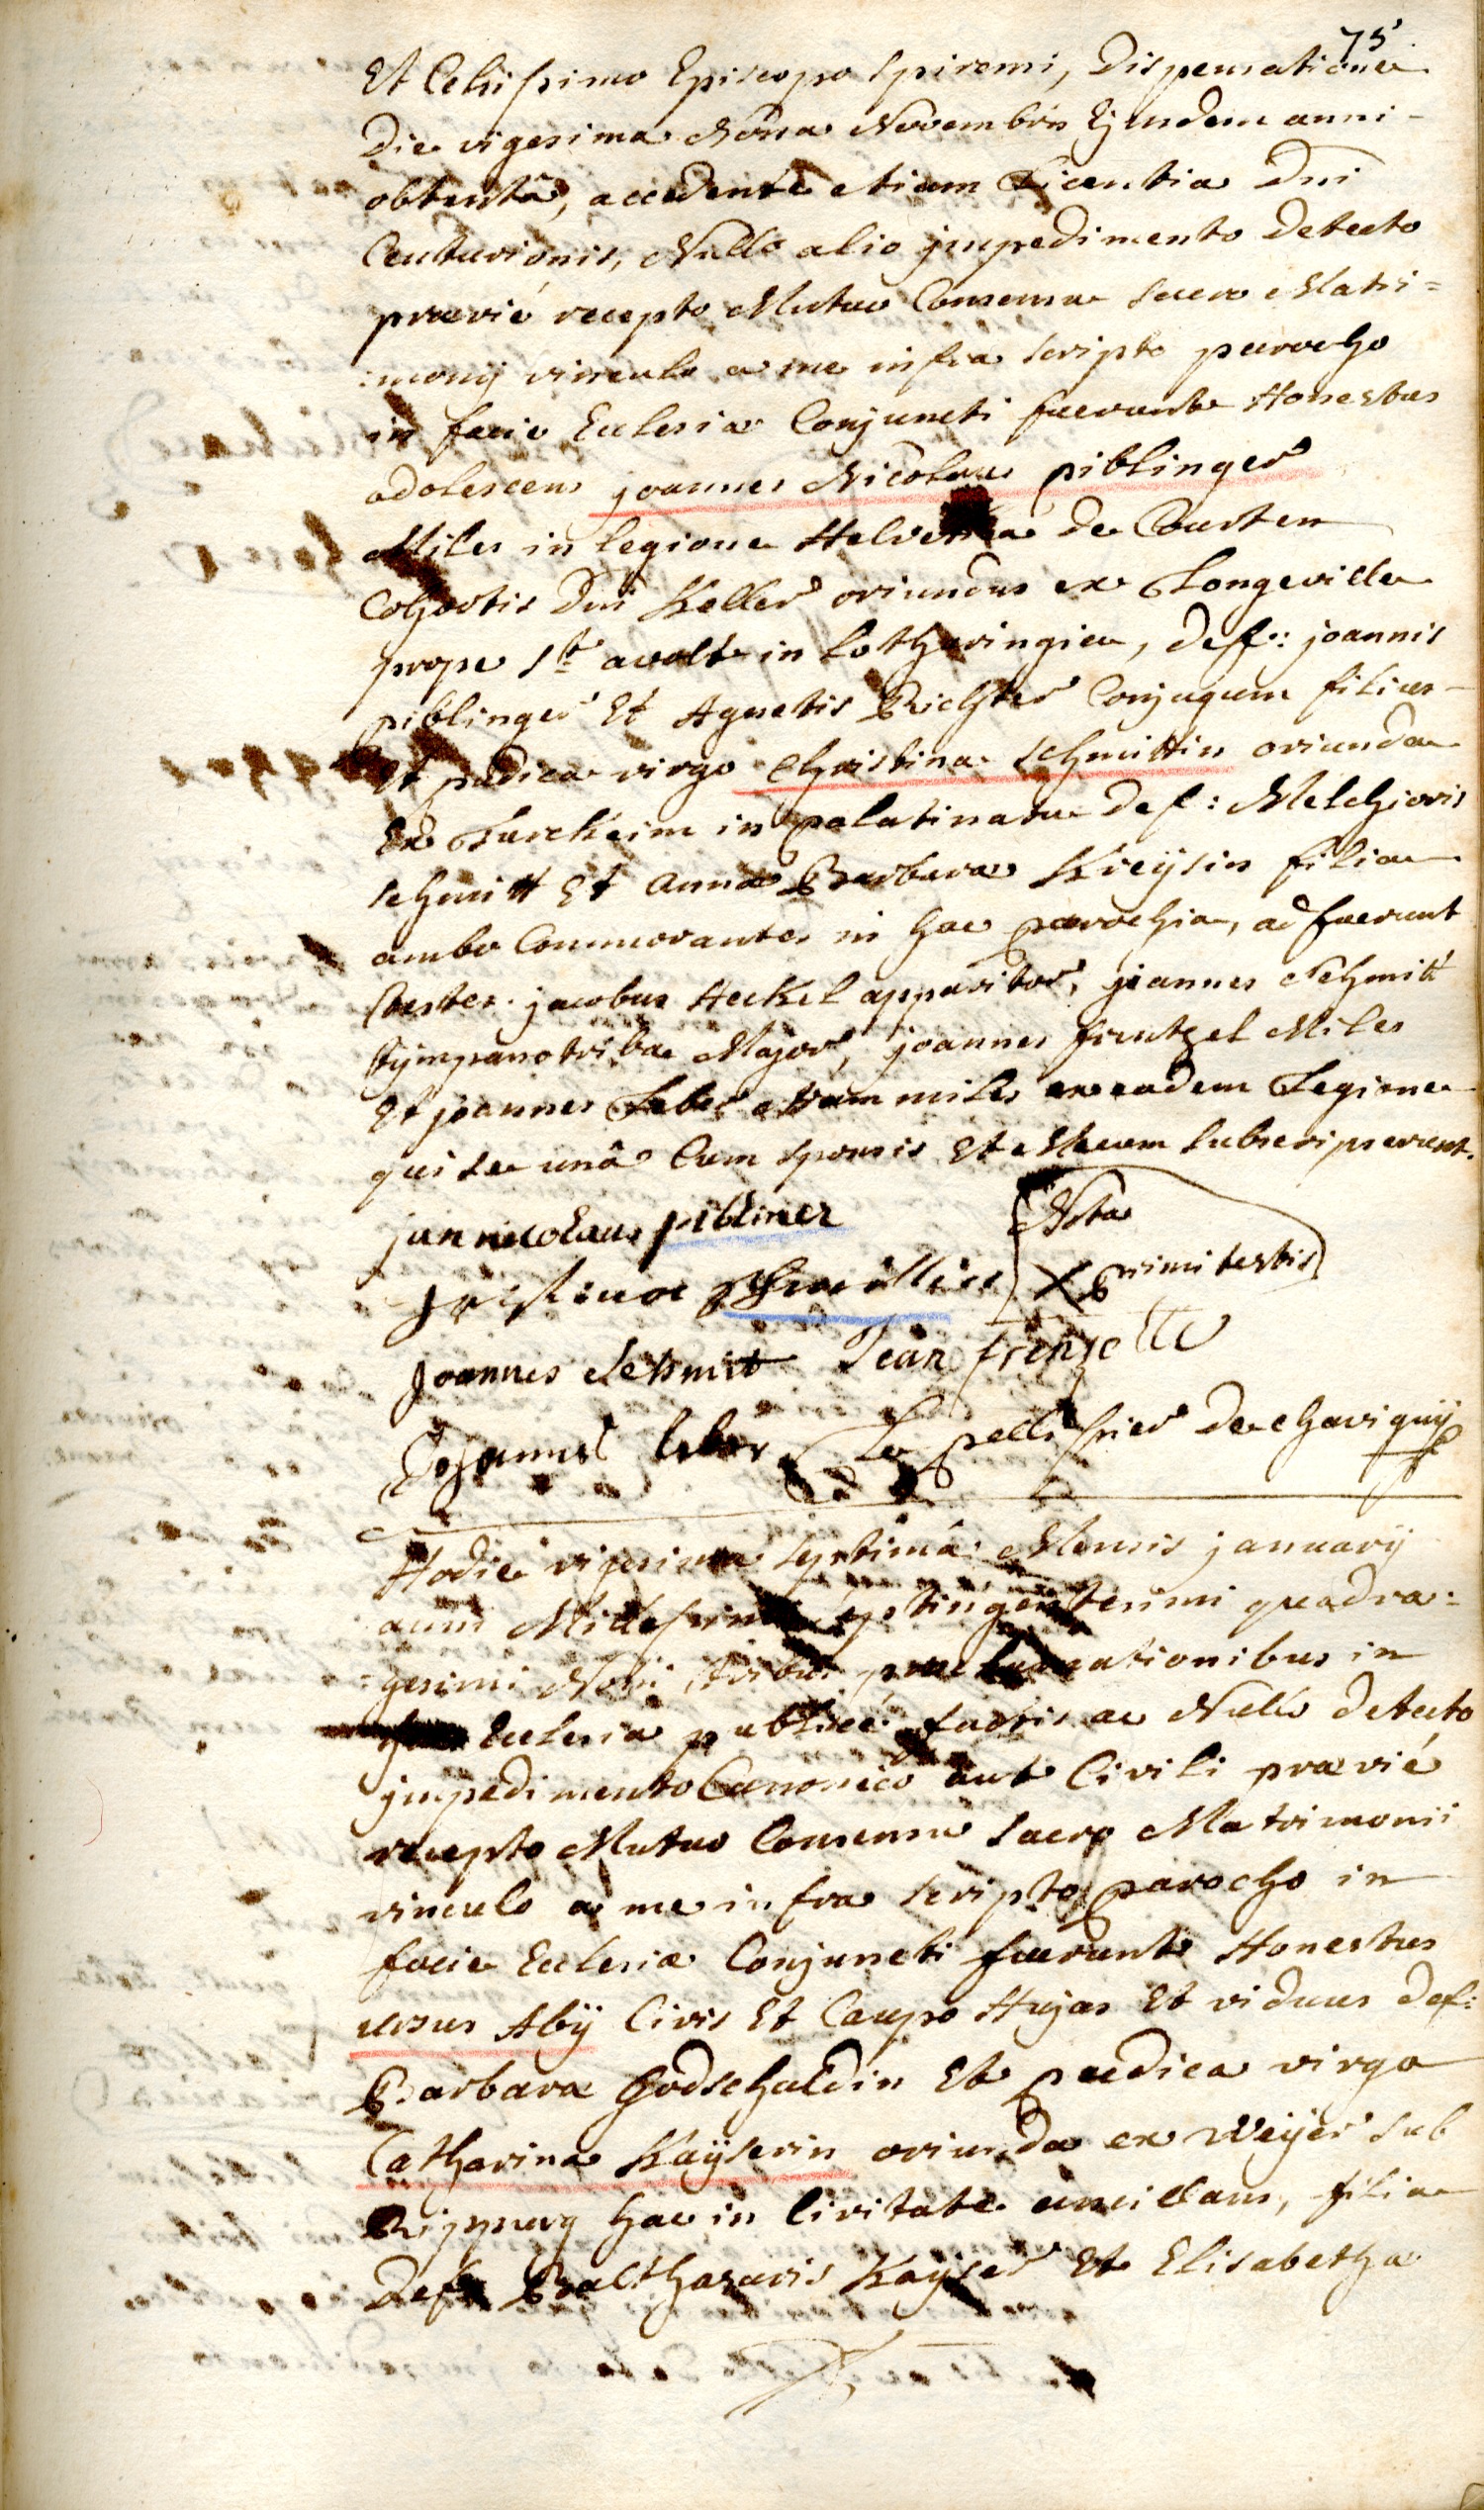 75
Et Celsissimo Episcopo Spirensi, Dispensatione
Die vigesima Nona Novembris Ejusdem anni
obtentâ, accedente etiam Licentia Dni
Centurionis, Nullo alio jmpedimento Detecto
prævié recepto Mutuo Consensu Sacro Matri=
:monij vinculo a me infra scripto parocho
in facie Ecclesiæ Conjuncti fuerunt Honestus
adolescens joannes Nicolaus piblinger
Miles in legione Helvetica de Courten
Cohortis Dni Keller oriundus ex Longeville
prope St avolt in Lotharingia, def: joannis
piblinger Et Agnetis Richter Conjugum filius
Et pudica virgo Christina Schmittin oriunda
Ex Turckeim in palatinatu def: Melchioris
Schmitt Et Annæ Barbaræ Kreÿsin filia
ambo Commorantes in hac parochia, adfuerunt
testes jacobus Heckel apparitor, joannes Schmitt
tympanotriba Major, joannes frentzel Miles
Et joannes Leber etiam miles ex eadem Legione
qui se unâ Cum sponsis Et Mecum Subscripserunt.
jan nicolaus pibliner
Nota
X primi testis
schmittin
Joannes Schmit Jean frenzelle
Johannes leber Le pellissier de chavignÿ
Hodie vigesima septimâ Mensis januarij
anni Millesimi septingentesimi quadra:
:gesimi Noni tribus proclamationibus in
Ecclesia publicé factis ac Nullo detecto
jmpedimento Canonico aut Civili prævié
recepto Mutuo Consensu Sacro Matrimonii
vinculo a me infra scripto parocho in
facie Ecclesiæ Conjuncti fuerunt Honestus
ursus Abÿ Civis Et Caupo Hujas Et viduus def:
Barbaræ Godschaldin Et pudica virgo
Catharina Kaÿserin oriunda ex Weÿer sub
Rippurg hac in Civitate ancillans, filia
def: Balthasaris Kaÿser Et Elisabetha